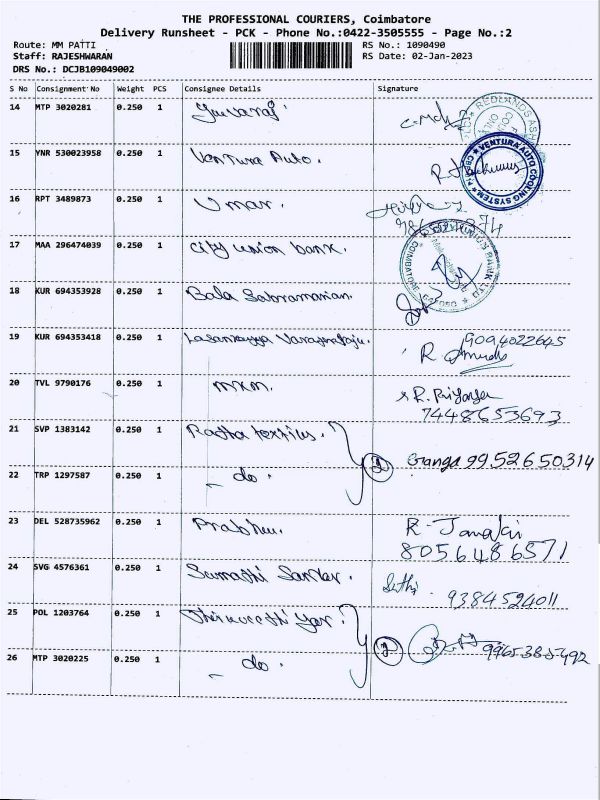 THE PROFESSIONAL COURIERS, Coimbatore
Delivery Runsheet - PCK - Phone No.:0422-3505555 - Page No.:2
Route: MM PATTI RS No.: 1090490
Staff: RAJESHWARAN RS Date: 02-Jan-2023
DRS No.: DCJB109049002
S No Consignment No Weight PCS Consignee Details Signature
14 MTP 3020281 0.250 1 Yuvaraj
REDLANDS ASH
15 YNR 530023958 0.250 1 Ventura Auto.
VENTURA AUTO COOLING SYSTEM
16 RPT 3489873 0.250 1 Umar.
17 MAA 296474039 0.250 1 City union bank.
COIMBATORE
18 KUR 694353928 0.250 1 Bala Subramanian.
19 KUR 694353418 0.250 1 9094022645
R
20 TVL 9790176 0.250 1 mxm. R. Priyanga
7448653693
21 SVP 1383142 0.250 1 Radha textiles. 2 Ganga 9952650314
22 TRP 1297587 0.250 1 - do.
23 DEL 528735962 0.250 1 Prabhu. R. Janaki
8056486571
24 SVG 4576361 0.250 1 Sumathi
9384524011
25 POL 1203764 0.250 1 2 9965385492
26 MTP 3020225 0.250 1 - do.